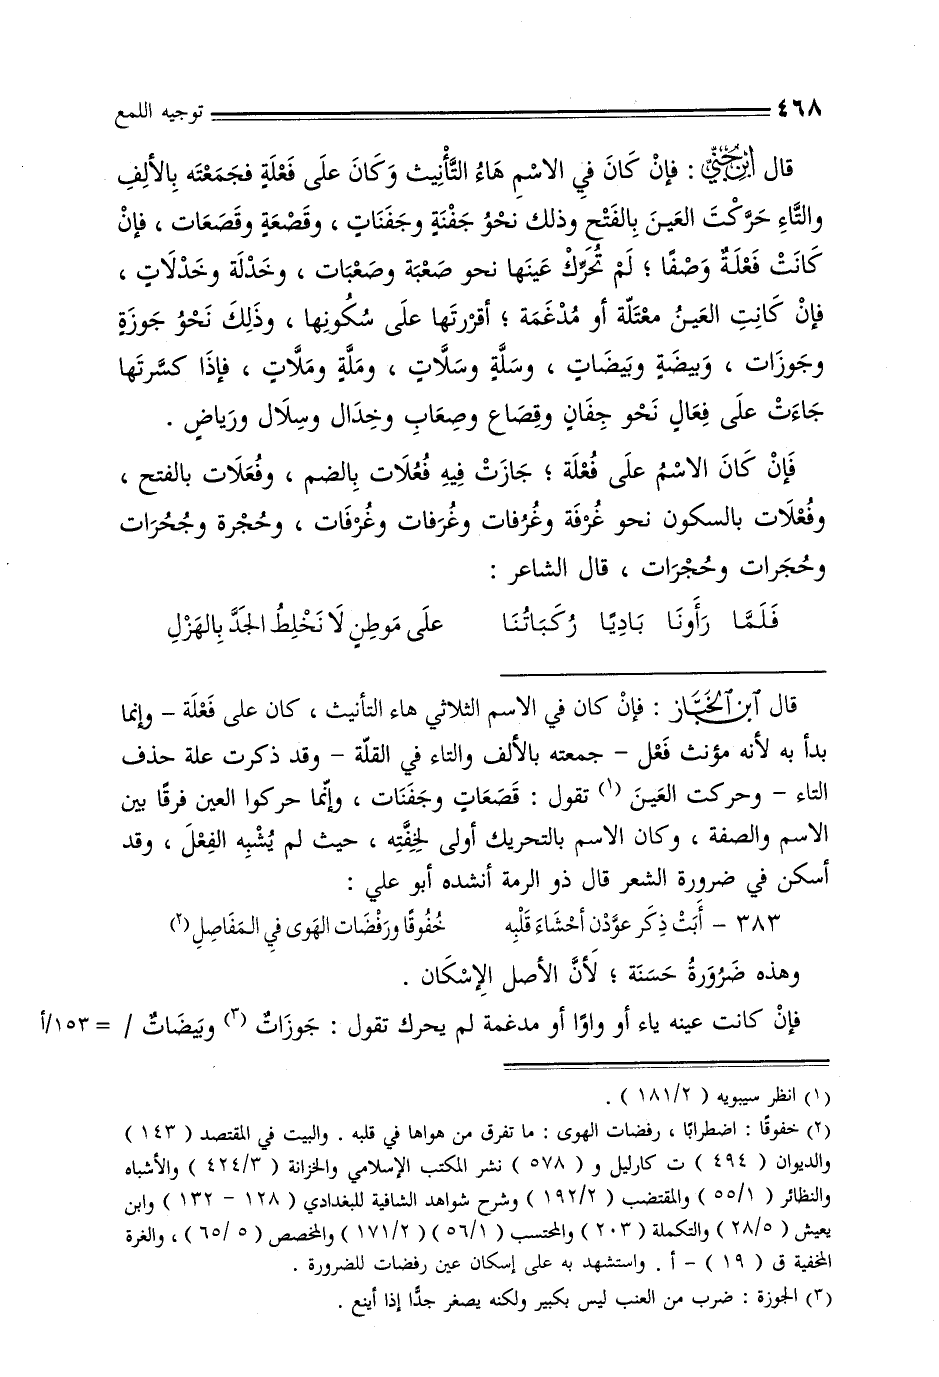 ٤٦٨ توجيه اللمع
قال ابن جني : فإنْ كَانَ فِي الاسْمِ هَاءُ التَّأْنِيث وَكَانَ علَى فَعْلَةٍ فجَمَعْتَه بِالألِفِ
والتَّاءِ حَرَّكْتَ العَيـنَ بِالفَتْحِ وذلك نحْوُ جَفْنَةٍ وجَفَنَاتٍ ، وقَصْعَةٍ وقَصَعَات ، فإنْ
كَانَتْ فَعْلَةٌ وَصْفًا ؛ لَمْ تُحَرِّكْ عَينَها نحو صَعْبَة وصَعْبَات ، وخَدْلَة وخَدْلَاتٍ ،
فإنْ كَانَتِ العَيـنُ معْتَلّة أو مُدْغَمَة ؛ أقرَرتَها علَى سُكُونِها ، وذَلِكَ نَحْوُ جَوزَةٍ
وجَوزَات ، وَبيضَةٍ وبَيضَاتٍ ، وسَلَّةٍ وسَلَّاتٍ ، ومَلَّةٍ ومَلَّاتٍ ، فإذَا كسَّرتَها
جَاءَتْ علَى فِعَالٍ نَحْو جِفَانٍ وقِصَاع وصِعَابٍ وخِدَال وسِلَال ورِيَاضٍ .
فَإنْ كَانَ الاسْمُ علَى فُعْلَة ؛ جَازَتْ فِيهِ فُعُلَات بِالضم ، وفُعَلَات بالفتح ،
وفُعْلَات بالسكون نحو غُرْفَة وغُرُفات وغُرَفات وغُرْفَات ، وحُجْرة وحُجُرَات
وحُجَرات وحُجْرَات ، قال الشاعر :
فَلَمَّا رَأَونَا بَادِيًا رُكَبَاتُنَا علَى مَوطِنٍ لَا نَخْلِطُ الجَدَّ بِالهَزْلِ
قال ابن الخباز : فإنْ كان في الاسم الثلاثي هاء التأنيث ، كان على فَعْلَة – وإنما
بدأ به لأنه مؤنث فَعْل – جمعته بالألف والتاء في القلّة – وقد ذكرت علة حذف
التاء – وحركت العَينَ (١) تقول : قَصَعَاتٍ وجَفَنَات ، وإنّما حركوا العين فرقًا بين
الاسم والصفة ، وكان الاسم بالتحريك أولى لِخِفَّتِه ، حيث لم يُشْبِه الفِعْلَ ، وقد
أسكن في ضرورة الشعر قال ذو الرمة أنشده أبو علي :
٣٨٣ – أَبَتْ ذِكَر عوَّدْن أحْشَاءَ قَلْبِه خُفُوقًا ورَفْضَات الهَوى فِي الـمَفَاصِلِ (٢)
وهذه ضَرُورَةُ حَسَنَة ؛ لأنَّ الأصل الإسْكَان .
فإنْ كانت عينه ياء أو واوًا أو مدغمة لم يحرك تقول : جَوزَاتٌ (٣) وبَيضَاتٌ / = ١٥٣/أ
(١) انظر سيبويه ( ١٨١/٢ ) .
(٢) خفوقًا : اضطرابًا ، رفضات الهوى : ما تفرق من هواها في قلبه . والبيت في المقتصد ( ١٤٣ )
والديوان ( ٤٩٤ ) ت كارليل و ( ٥٧٨ ) نشر المكتب الإسلامي والخزانة ( ٤٢٤/٣ ) والأشباه
والنظائر ( ٥٥/١ ) والمقتضب ( ١٩٢/٢ ) وشرح شواهد الشافية للبغدادي ( ١٢٨ – ١٣٢ ) وابن
يعيش ( ٢٨/٥ ) والتكملة ( ٢٠٣ ) والمحتسب ( ٥٦/١ ) ( ١٧١/٢ ) والمخصص ( ٦٥/٥ ) ، والغرة
المخفية ق ( ١٩ ) – أ . واستشهد به على إسكان عين رفضات للضرورة .
(٣) الجوزة : ضرب من العنب ليس بكبير ولكنه يصغر جدًّا إذا أينع .